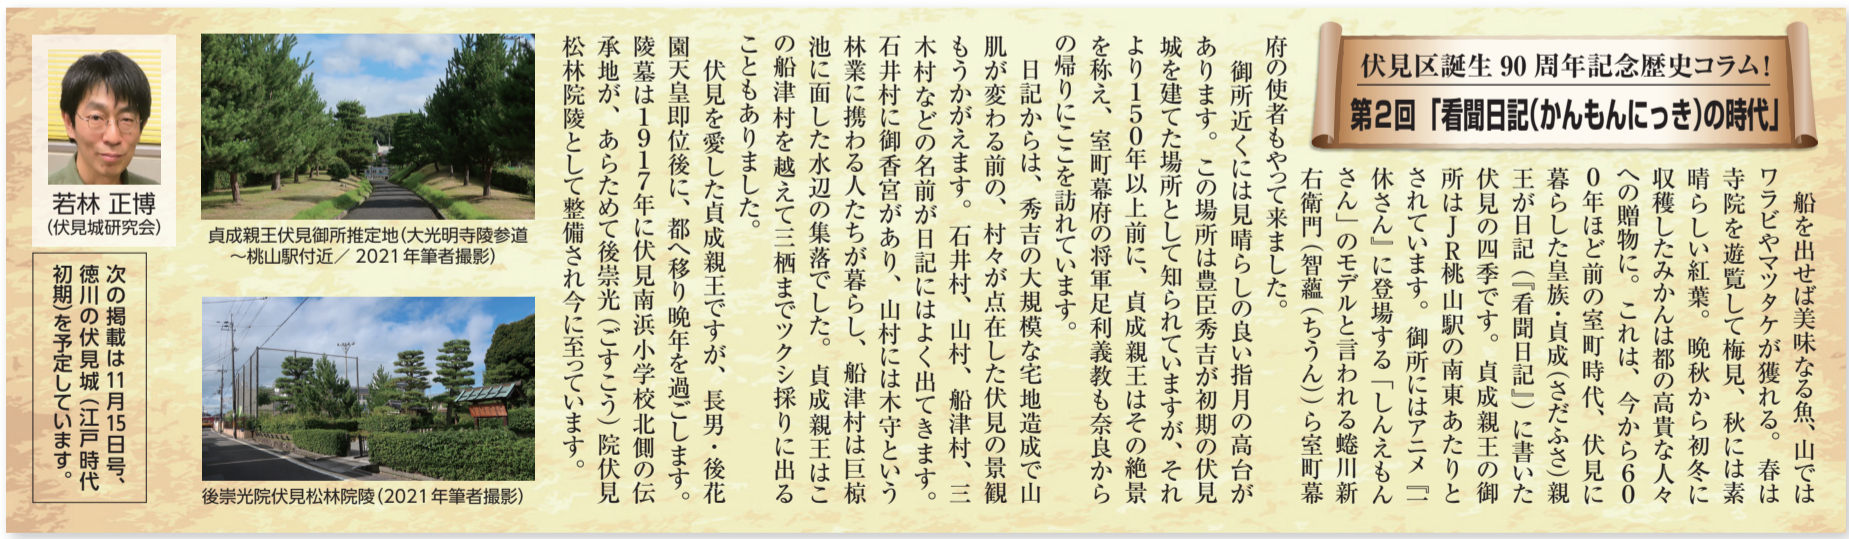 伏見区誕生90周年記念歴史コラム!
第2回「看聞日記(かんもんにっき)の時代」
船を出せば美味なる魚、山では
ワラビやマツタケが獲れる。春は
寺院を遊覧して梅見、秋には素
晴らしい紅葉。晩秋から初冬に
収穫したみかんは都の高貴な人々
への贈物に。これは、今から60
0年ほど前の室町時代、伏見に
暮らした皇族・貞成(さだふさ)親
王が日記(『看聞日記』)に書いた
伏見の四季です。貞成親王の御
所はJR桃山駅の南東あたりと
されています。御所にはアニメ『一
休さん』に登場する「しんえもん
さん」のモデルと言われる蜷川新
右衛門(智蘊(ちうん))ら室町幕
府の使者もやって来ました。
御所近くには見晴らしの良い指月の高台が
あります。この場所は豊臣秀吉が初期の伏見
城を建てた場所として知られていますが、それ
より150年以上前に、貞成親王はその絶景
を称え、室町幕府の将軍足利義教も奈良から
の帰りにここを訪れています。
日記からは、秀吉の大規模な宅地造成で山
肌が変わる前の、村々が点在した伏見の景観
もうかがえます。石井村、山村、船津村、三
木村などの名前が日記にはよく出てきます。
石井村に御香宮があり、山村には木守という
林業に携わる人たちが暮らし、船津村は巨椋
池に面した水辺の集落でした。貞成親王はこ
の船津村を越えて三栖までツクシ採りに出る
こともありました。
伏見を愛した貞成親王ですが、長男・後花
園天皇即位後に、都へ移り晩年を過ごします。
陵墓は1917年に伏見南浜小学校北側の伝
承地が、あらためて後崇光(ごすこう)院伏見
松林院陵として整備され今に至っています。
貞成親王伏見御所推定地(大光明寺陵参道
～桃山駅付近／2021年筆者撮影)
後崇光院伏見松林院陵(2021年筆者撮影)
若林 正博
(伏見城研究会)
次の掲載は11月15日号、
徳川の伏見城(江戸時代
初期)を予定しています。